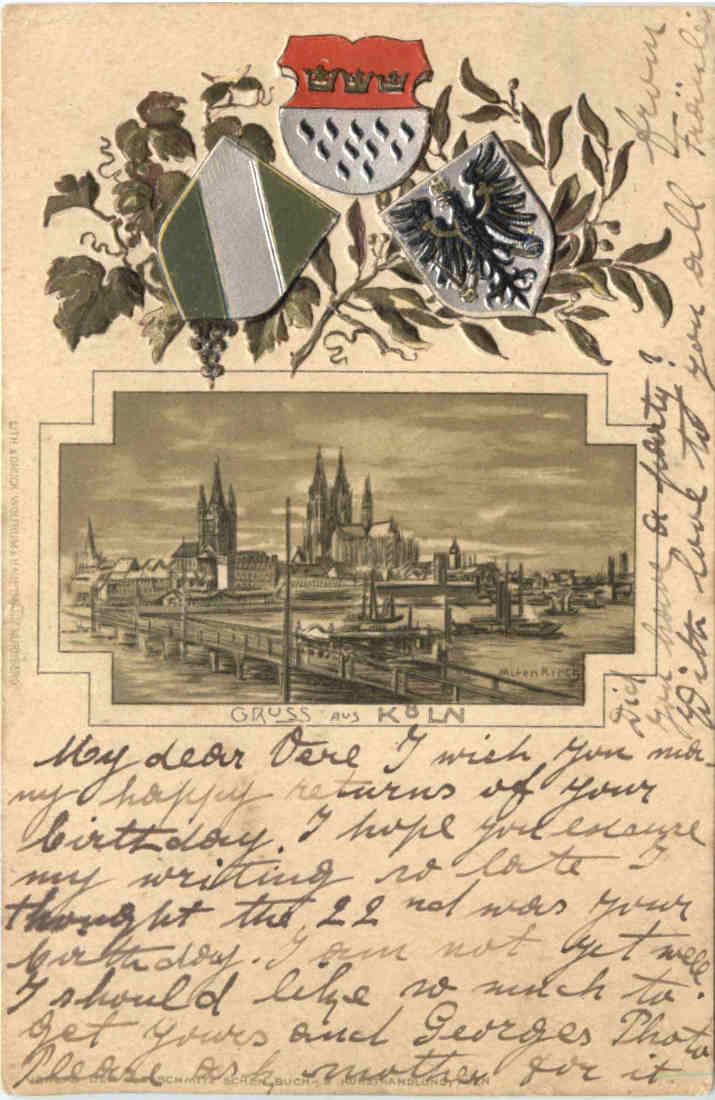 GRUSS AUS KÖLN
My dear Vere I wish you ma-
ny happy returns of your
birthday. I hope you excuse
my writing so late I
thought the 22nd was your
birthday. I am not yet well
I should like so much to
get yours and Georges Photo
Please ask mother for it.
Did
you have a party?
With love to you all
from Fräulein
LITH. & DRUCK
SCHMITZ'SCHEN BUCH- & KUNSTHANDLUNG, KÖLN